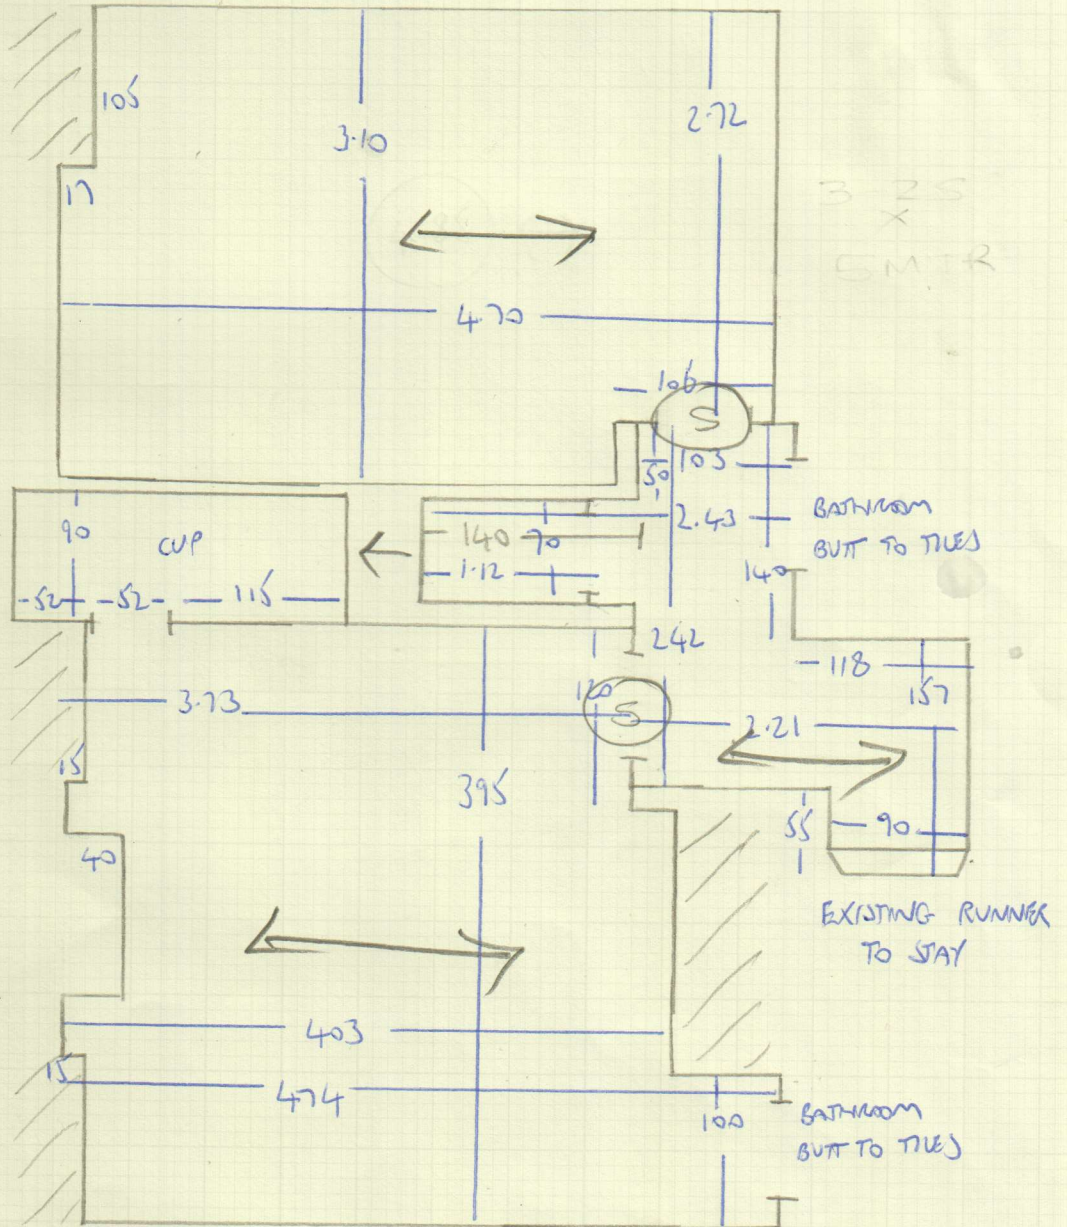 105
3.10
2.72
17
3.25
x
5MTR
4.70
106
S
50
103
2.43
BATHROOM
BUTT TO TILES
90
CUP
140
70
1.12
140
-52-
-52-
115
242
118
157
3.73
120
S
2.21
15
395
55
90
40
EXISTING RUNNER
TO STAY
403
15
474
100
BATHROOM
BUTT TO TILES